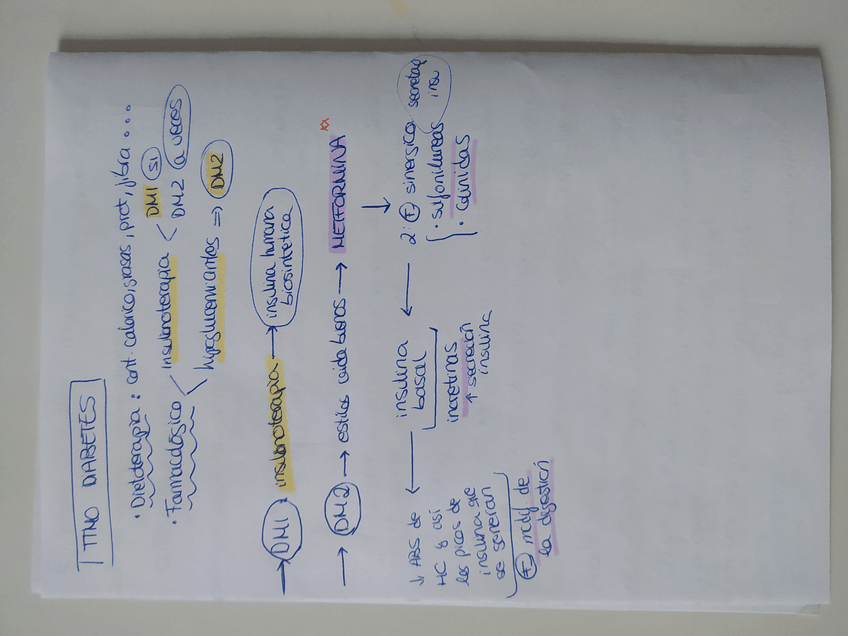 TTNO DIABETES
· Dietoterapia : cont. calorico, grasas, prot, fibra ...
· Farmacológico < insulinoterapia < DM1 SI
DM2 a veces
hipoglucemiantes => DM2
→ DM1 : insulinoterapia → insulina humana
biosintetica
→ DM2 → estilos vida buenos → METFORMINA xx
↓
2: F sinergica secretag
insu
· sulfonilureas
· Glinidas
← insulina
basal
incretinas
↑ secreción
insulina
← ↓ ABS de
HC y así
los picos de
insulina que
se generan
F modif de
la digestión